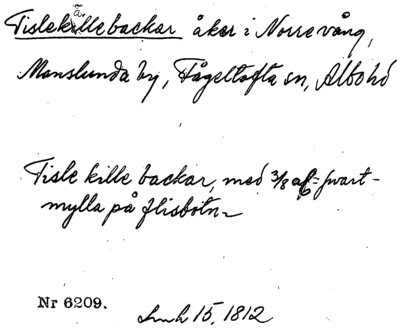 Tislekillebackar åker i Norrevång,
Monslunda by, Fågeltofta sn, Albo hd
Tisle kille backar, med 3/8 af= svart-
mylla på flisbotn
Nr 6209.
15, 1812